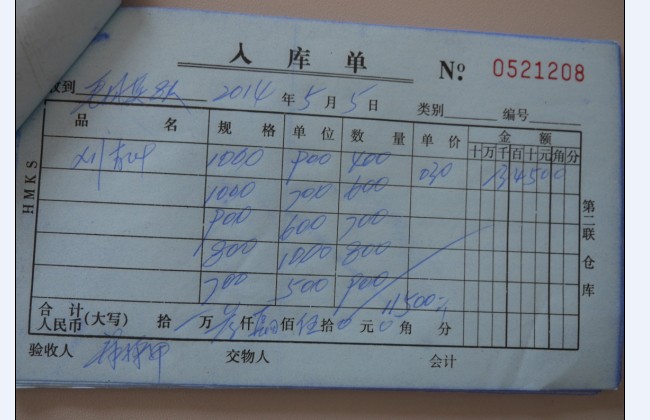 入库单
№ 0521208
收到 2014 年 5 月 5 日 类别 编号
品名 规格 单位 数量 单价 金额
十 万 千 百 十 元 角 分
1000 900 400 030 134500
1000 700 600
900 600 700
800 1000 800
700 500 900
11500
合计人民币(大写) 拾 万 仟 佰 伍 拾 0 元 0 角 分
验收人 交物人 会计
HMKS
第二联 仓库